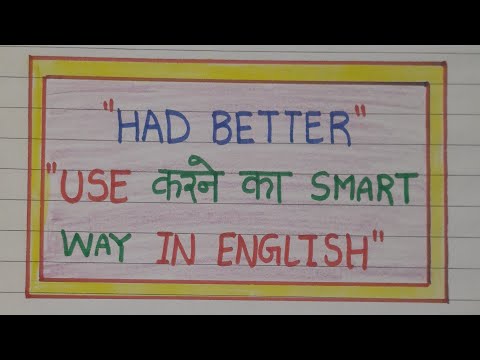 "HAD BETTER"
"USE करने का SMART
WAY IN ENGLISH"